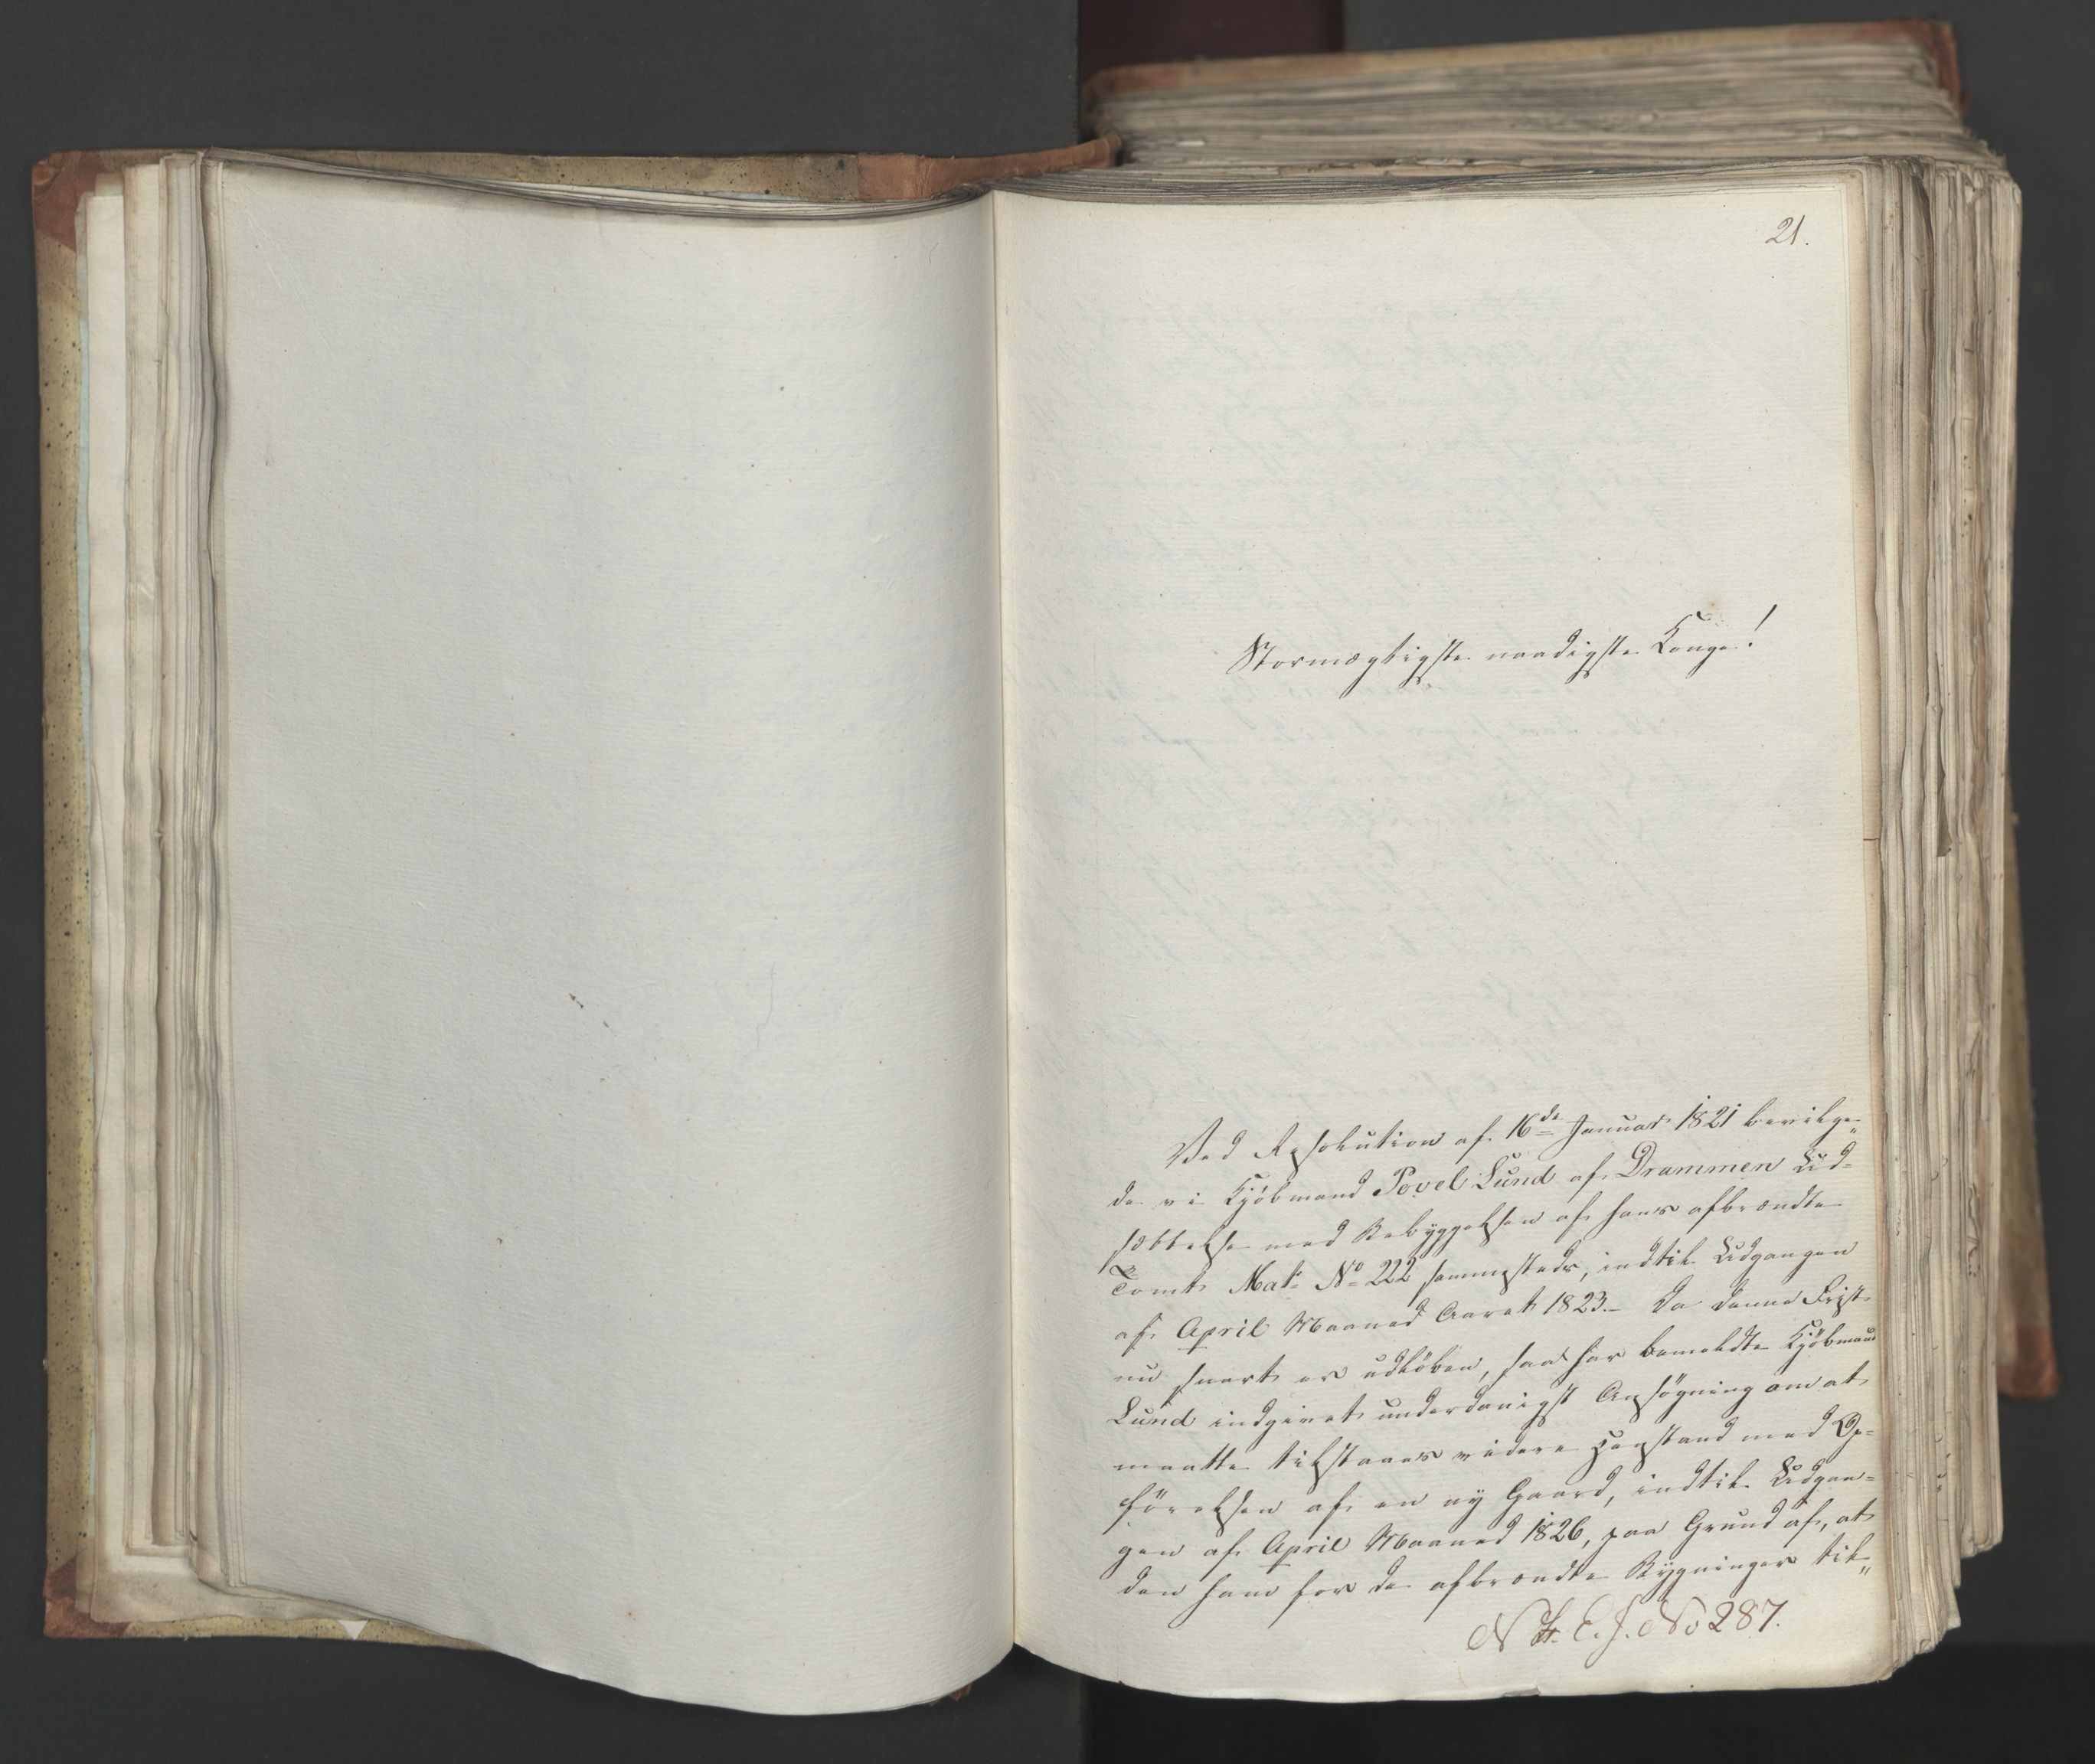 21.
Stormægtigste naadigste Konge!
Ved Resolution af 16de Januar 1821 bevilge„
de vi Kjöbmand Povel Lund af Drammen Ud=
sættelse med Bebyggelsen af hans afbrændte
Tomt Matr No 222 sammesteds, indtil Udgangen
af April Maaned Aaret 1823. – Da denne Frist
nu snart er udløben, saa har bemeldte Kjöbmand
Lund indgivet underdanigst Ansøgning om at
maatte tilstaaes videre Henstand med Op=
førelsen af en ny Gaard, indtil Udgan=
gen af April Maaned 1826, paa Grund af, at
den ham for de afbrændte Bygninger til„
No 287.